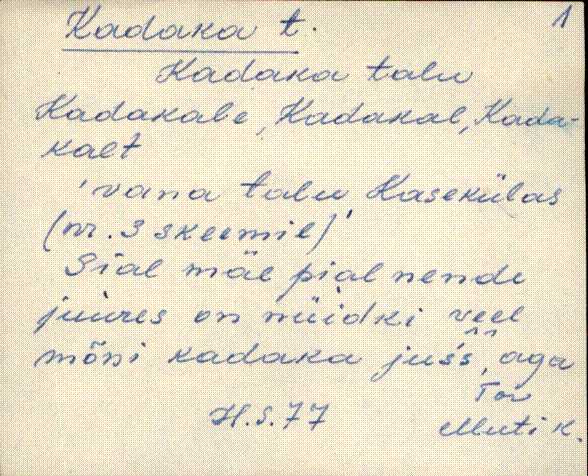 Kadaka t. 1
Kadaka talu
Kadakale, Kadakal, Kada-
kalt
'vana talu Kasekülas
(nr. 3 skeemil)'
Sial mäe pial nende
juures on nüidki veel
mõni kadaka juśś, aga
Tor
H.S.77 Muti k.